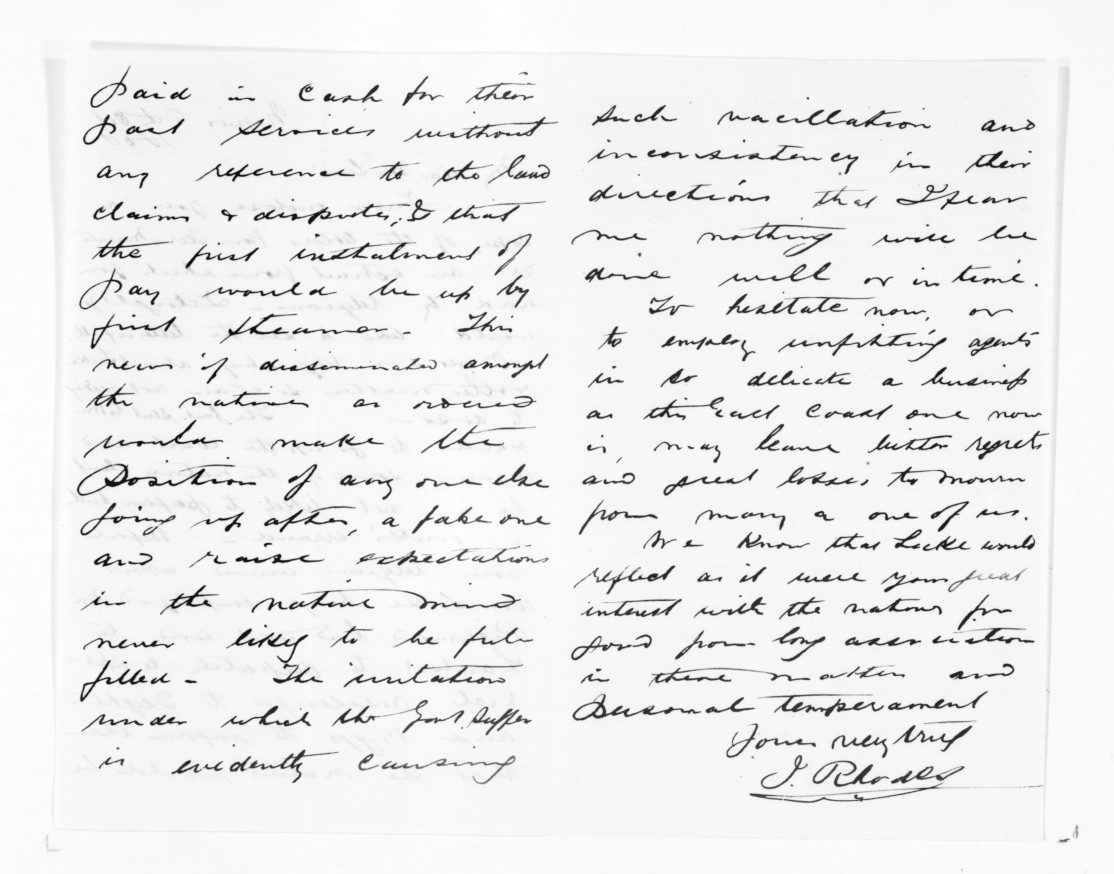 paid in cash for their
past services without
any reference to the land
claims & disputes, & that
the first instalment of
pay would be up by
first steamer - This
news if disseminated amongst
the natives as ordered
would make the
position of any one else
going up after, a fake one
and raise expectations
in the native mind
never likely to be ful-
filled - The irritation
under which the Govt. suffer
is evidently causing
such vacillation and
inconsistency in their
directions that I fear
me nothing will be
done well or in time.
To hesitate now, or
to employ unfitting agents
in so delicate a business
as this East Coast one now
is, may leave bitter regrets
and great losses to mourn
from many a one of us.
We know that Locke would
reflect as it were your great
interest with the natives for
good from long association
in these matters and
personal temperament
Yours very truly
J. Rhodes